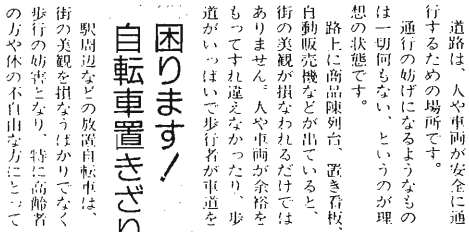 道路は、人や車両が安全に通
行するための場所です。
通行の妨げになるようなもの
は一切何もない、というのが理
想の状態です。
路上に商品陳列台、置き看板、
自動販売機などが出ていると、
街の美観が損なわれるだけでは
ありません。人や車両が余裕を
もってすれ違えなかったり、歩
道がいっぱいで歩行者が車道を
困ります!
自転車置きざり
駅周辺などの放置自転車は、
街の美観を損なうばかりでなく
歩行の妨害となり、特に高齢者
の方や体の不自由な方にとって